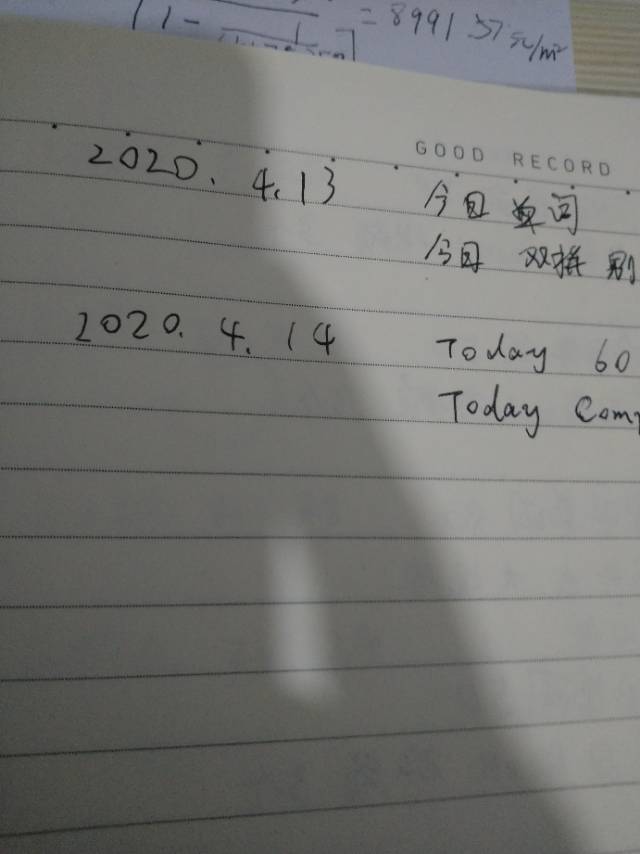 = 8991.37元/m²
GOOD RECORD
2020. 4. 13 今日单词
今日 双拼
2020. 4. 14 Today 60
Today